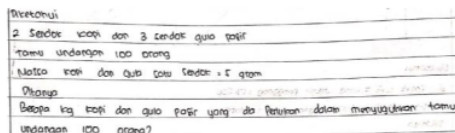 Diketahui
2 sendok kopi dan 3 sendok gula pasir
Tamu undangan 100 orang
Massa kopi dan gula satu sendok = 5 gram
Ditanya
Berapa kg kopi dan gula pasir yang di perlukan dalam menyuguhkan tamu
undangan 100 orang?